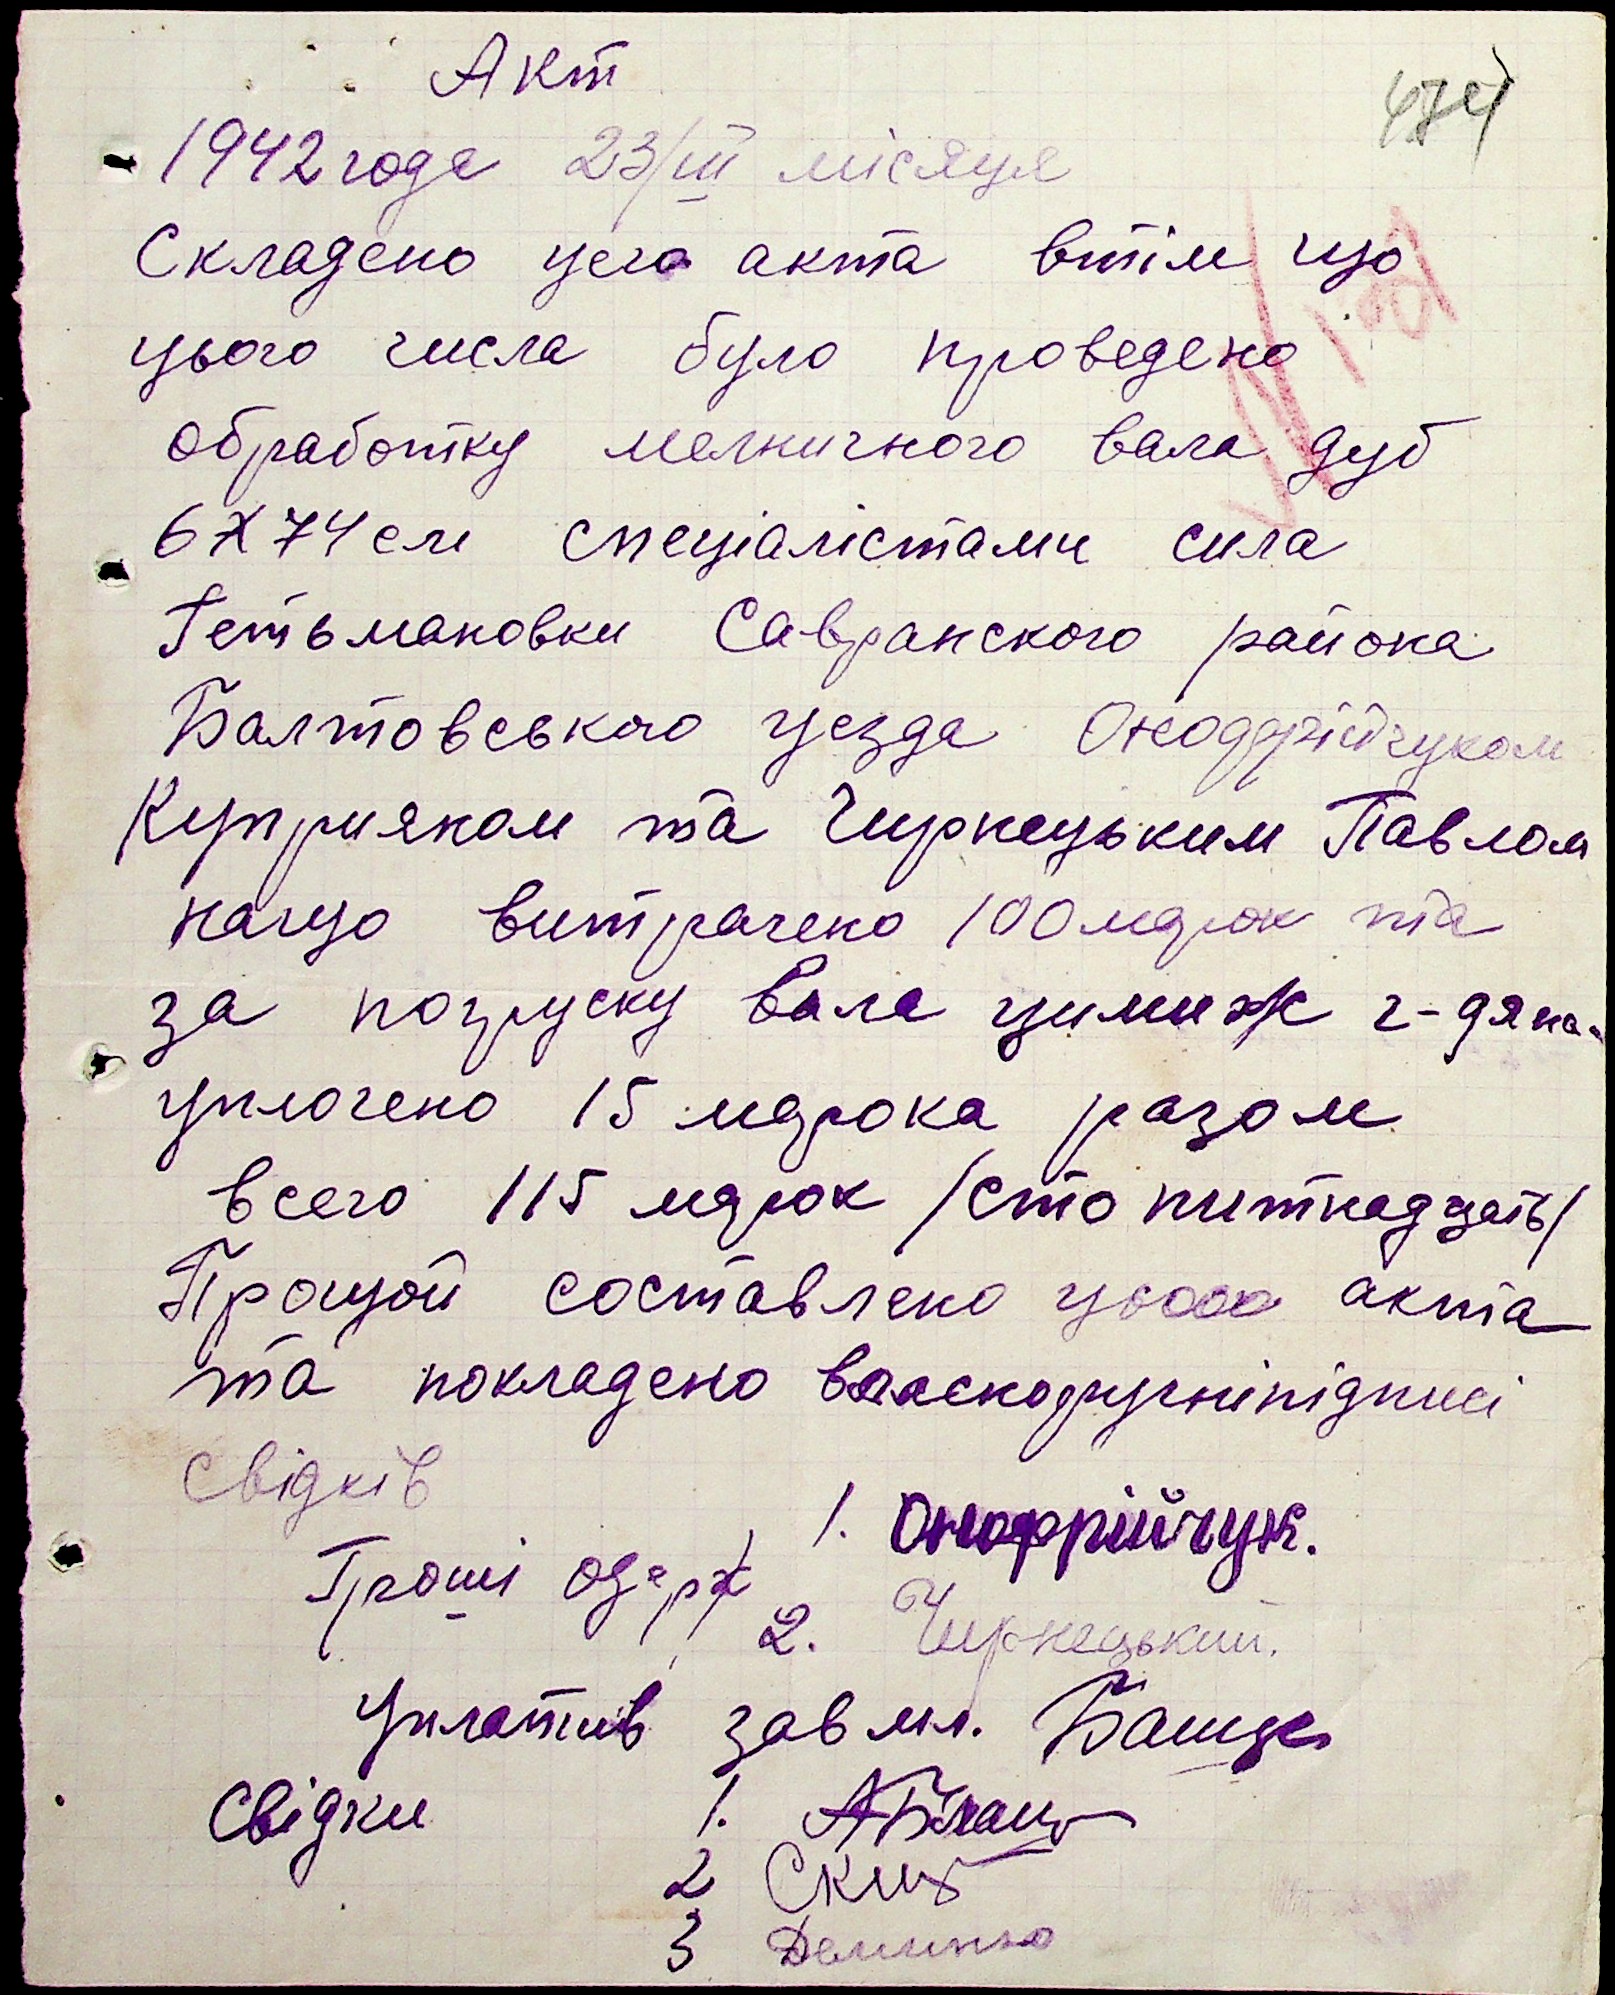 Акт
474
1942 года 23/III місяця
Складено цего акта втім що
цього числа було проведено
обработку мелничного вала дуб
6X74 см спеціалістами сила
Гетьмановки Савранского района
Балтовського уезда Оноффрійчуком
Куприяном та Чирнецьким Павлом
нащо витрачено 100 марок та
за погруску вала цимиж г-дяна-
уплочено 15 марока разом
всего 115 марок /сто питнадцать/
Прощой составлено цього акта
та покладено власноручніпідписі
свідків
1. Онофрійчук.
Гроші одерж
2. Чирнецький.
Уплатив зав мл.
Свідки 1.
2
3